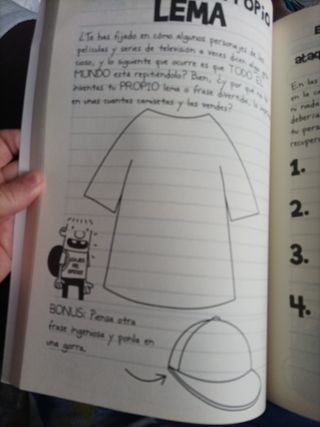 PROPIO
LEMA
¿Te has fijado en cómo algunos personajes de las
películas y series de televisión a veces dicen algo
y lo siguiente que ocurre es que TODO EL
MUNDO está repitiéndolo? Bien, ¿y por qué no
inventas tu PROPIO lema o frase divertida, lo
en unas cuantas camisetas y las vendes?
BONUS: Piensa otra
frase ingeniosa y ponla en
una gorra.
ataq
En las
en la ca
ni nada
debería
tu pers
recuper
1.
2.
3.
4.